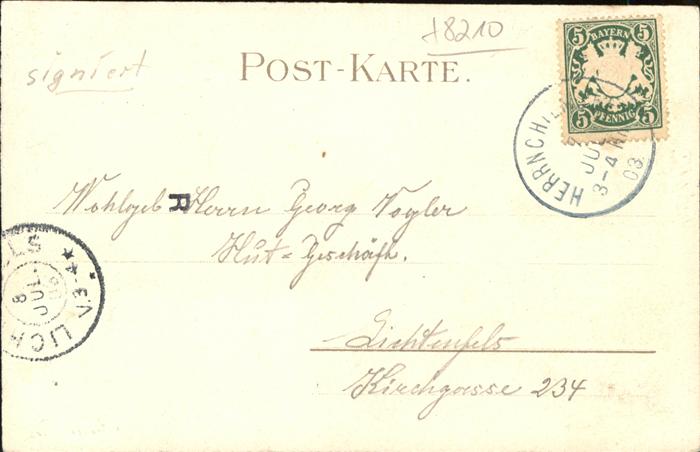 +8210
signiert
POST-KARTE.
5 BAYERN 5
5 PFENNIG 5
HERRNCHI
JUL
3-4 N
03
R
Wohlgeb Herrn Georg Vogler
Hut=Geschäft.
Lichtenfels
Kirchgasse 234
LICH
LS
V.3-4
8
JUL.